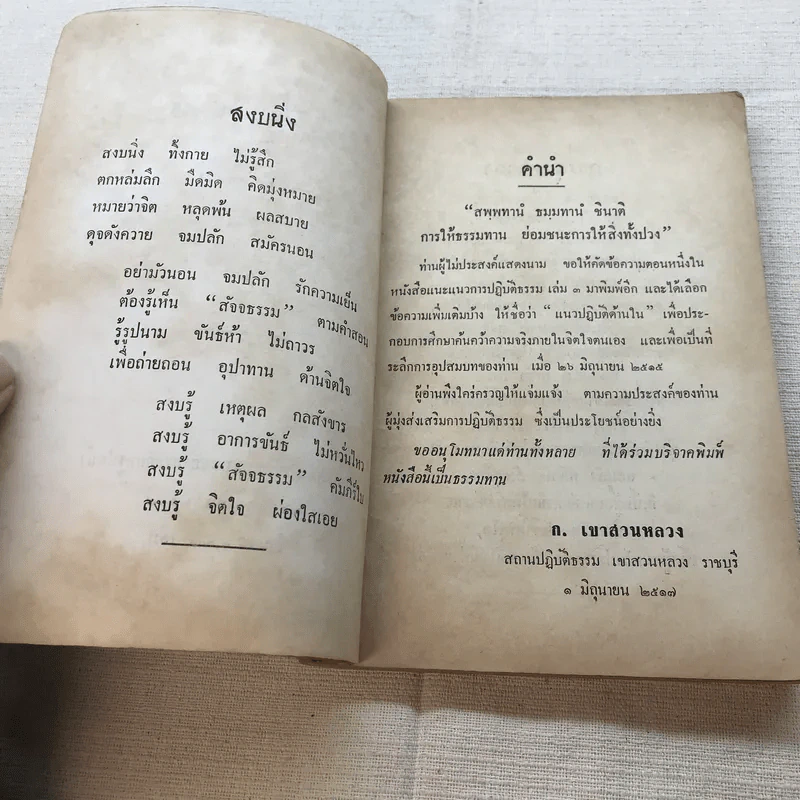 สงบนิ่ง
สงบนิ่ง ทั้งกาย ไม่รู้สึก
ตกหล่มลึก มืดมิด คิดมุ่งหมาย
หมายว่าจิต หลุดพ้น ผลสบาย
ดุจดังควาย จมปลัก สมัครนอน
อย่ามัวนอน จมปลัก รักความเย็น
ต้องรู้เห็น “สัจจธรรม” ตามคำสอน
รู้รูปนาม ขันธ์ห้า ไม่ถาวร
เพื่อถ่ายถอน อุปาทาน ด้านจิตใจ
สงบรู้ เหตุผล กลสังขาร
สงบรู้ อาการขันธ์ ไม่หวั่นไหว
สงบรู้ “สัจจธรรม” คัมภีร์ใน
สงบรู้ จิตใจ ผ่องใสเอย
คำนำ
“สพฺพทานํ ธมฺมทานํ ชินาติ
การให้ธรรมทาน ย่อมชนะการให้สิ่งทั้งปวง”
ท่านผู้ไม่ประสงค์แสดงนาม ขอให้คัดข้อความตอนหนึ่งใน
หนังสือแนะแนวการปฏิบัติธรรม เล่ม ๓ มาพิมพ์อีก และได้เลือก
ข้อความเพิ่มเติมบ้าง ให้ชื่อว่า “แนวปฏิบัติด้านใน” เพื่อประ-
กอบการศึกษาค้นคว้าความจริงภายในจิตใจตนเอง และเพื่อเป็นที่
ระลึกการอุปสมบทของท่าน เมื่อ ๒๖ มิถุนายน ๒๕๑๕
ผู้อ่านพึงใคร่ครวญให้แจ่มแจ้ง ตามความประสงค์ของท่าน
ผู้มุ่งส่งเสริมการปฏิบัติธรรม ซึ่งเป็นประโยชน์อย่างยิ่ง
ขออนุโมทนาแด่ท่านทั้งหลาย ที่ได้ร่วมบริจาคพิมพ์
หนังสือนี้เป็นธรรมทาน
ก. เขาสวนหลวง
สถานปฏิบัติธรรม เขาสวนหลวง ราชบุรี
๑ มิถุนายน ๒๕๑๗